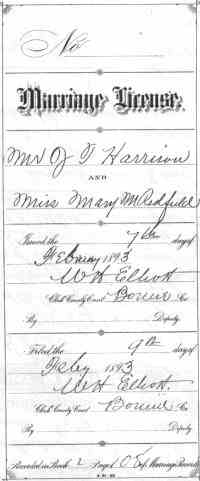 No
Marriage License.
Mr J T Harrison
AND
Miss Mary M Redfield
Issued the 7th day of
February 1893
W H Elliott
Clerk County Court Bowie Co
By Deputy
Filed the 9th day of
Feby 1893
W H Elliott.
Clerk County Court Bowie Co
By Deputy
Recorded in Book 2 Page of Marriage Records